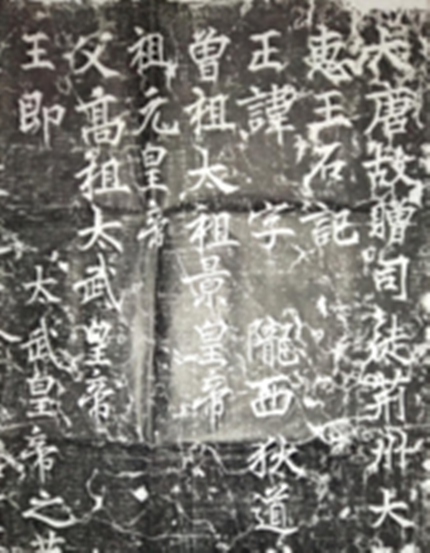 大唐故贈司徒荊州大
惠王石記
王諱 字 隴西狄道
曾祖太祖景皇帝
祖元皇帝
父高祖太武皇帝
王即 太武皇帝之